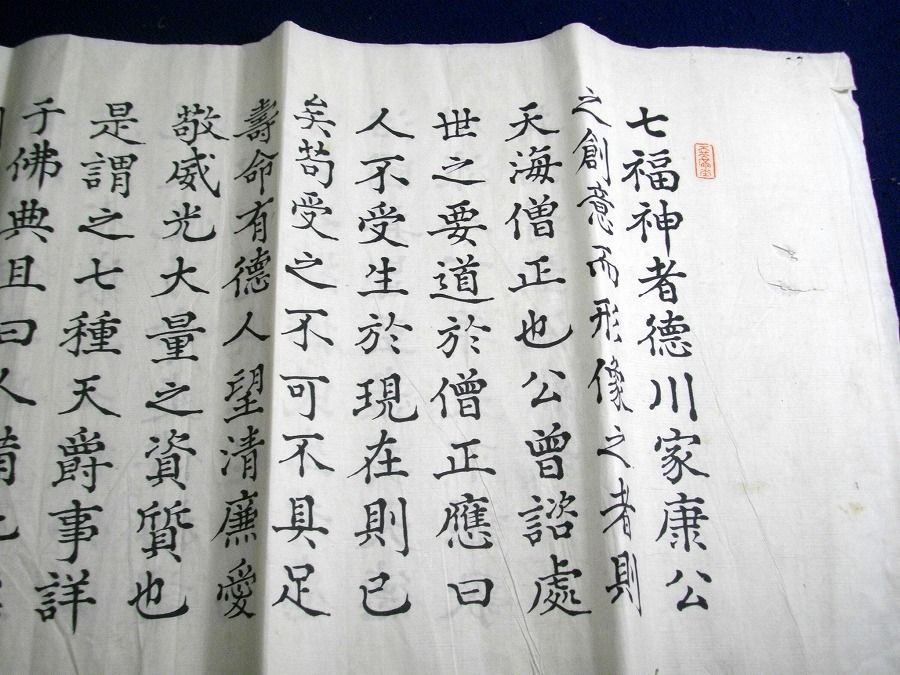 七福神者德川家康公
之創意而形像之者則
天海僧正也公曾諮處
世之要道於僧正應曰
人不受生於現在則已
矣苟受之不可不具足
壽命有德人望清廉愛
敬威光大量之資質也
是謂之七種天爵事詳
于佛典且曰人